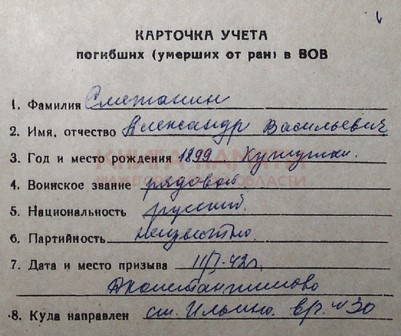 КАРТОЧКА УЧЕТА
погибших (умерших от ран) в ВОВ
1. Фамилия Сметанин
2. Имя, отчество Александр Васильевич
3. Год и место рождения 1899
4. Воинское звание рядовой
5. Национальность русский.
6. Партийность неизвестно.
7. Дата и место призыва 42г.
Д Константиново
8. Куда направлен ст. Ильино. вр. №30